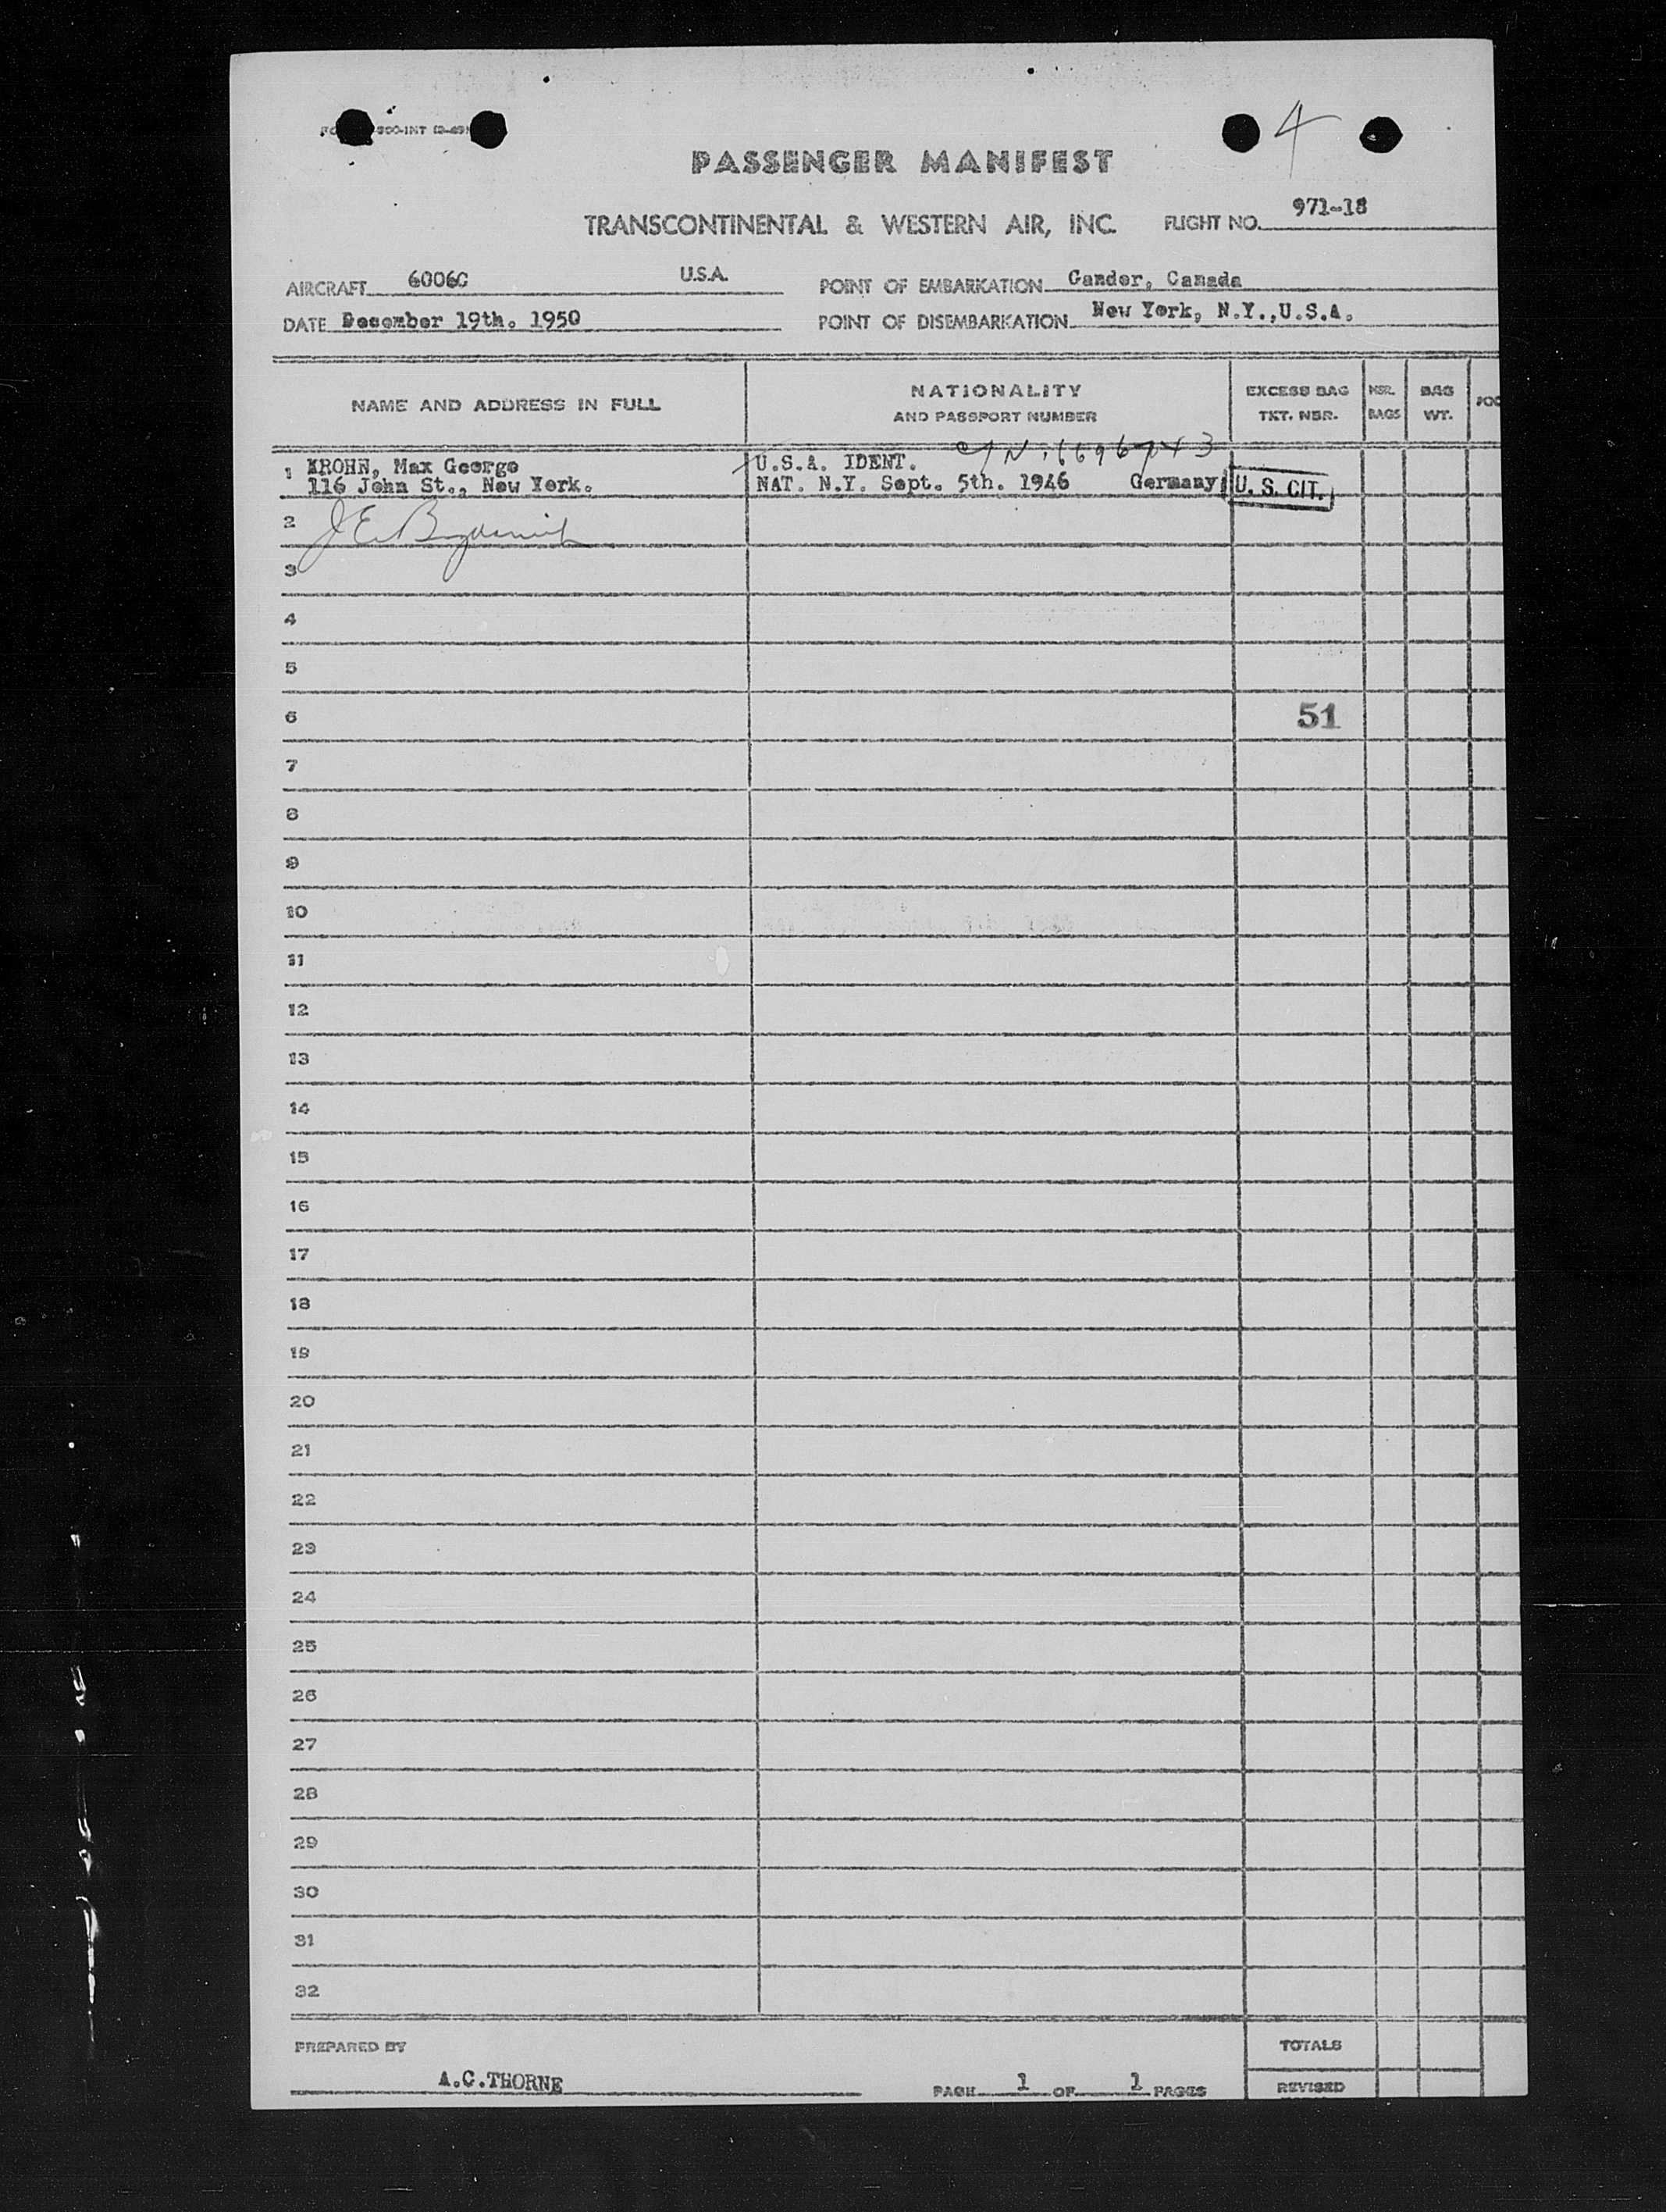 4
PASSENGER MANIFEST
TRANSCONTINENTAL & WESTERN AIR, INC. FLIGHT NO. 971-18
AIRCRAFT 6006C U.S.A. POINT OF EMBARKATION Gander, Canada
DATE December 19th. 1950 POINT OF DISEMBARKATION New York, N.Y.,U.S.A.
NAME AND ADDRESS IN FULL
NATIONALITY
AND PASSPORT NUMBER
EXCESS BAG
TKT. NBR.
NBR.
BAGS
BAG
WT.
1 KROHN, Max George
116 John St., New York.
U.S.A. IDENT.
NAT. N.Y. Sept. 5th. 1946 Germany
U. S. CIT.
2
3
4
5
6 51
7
8
9
10
11
12
13
14
15
16
17
18
19
20
21
22
23
24
25
26
27
28
29
30
31
32
PREPARED BY
A.C.THORNE
PAGE 1 OF 1 PAGES
TOTALS
REVISED